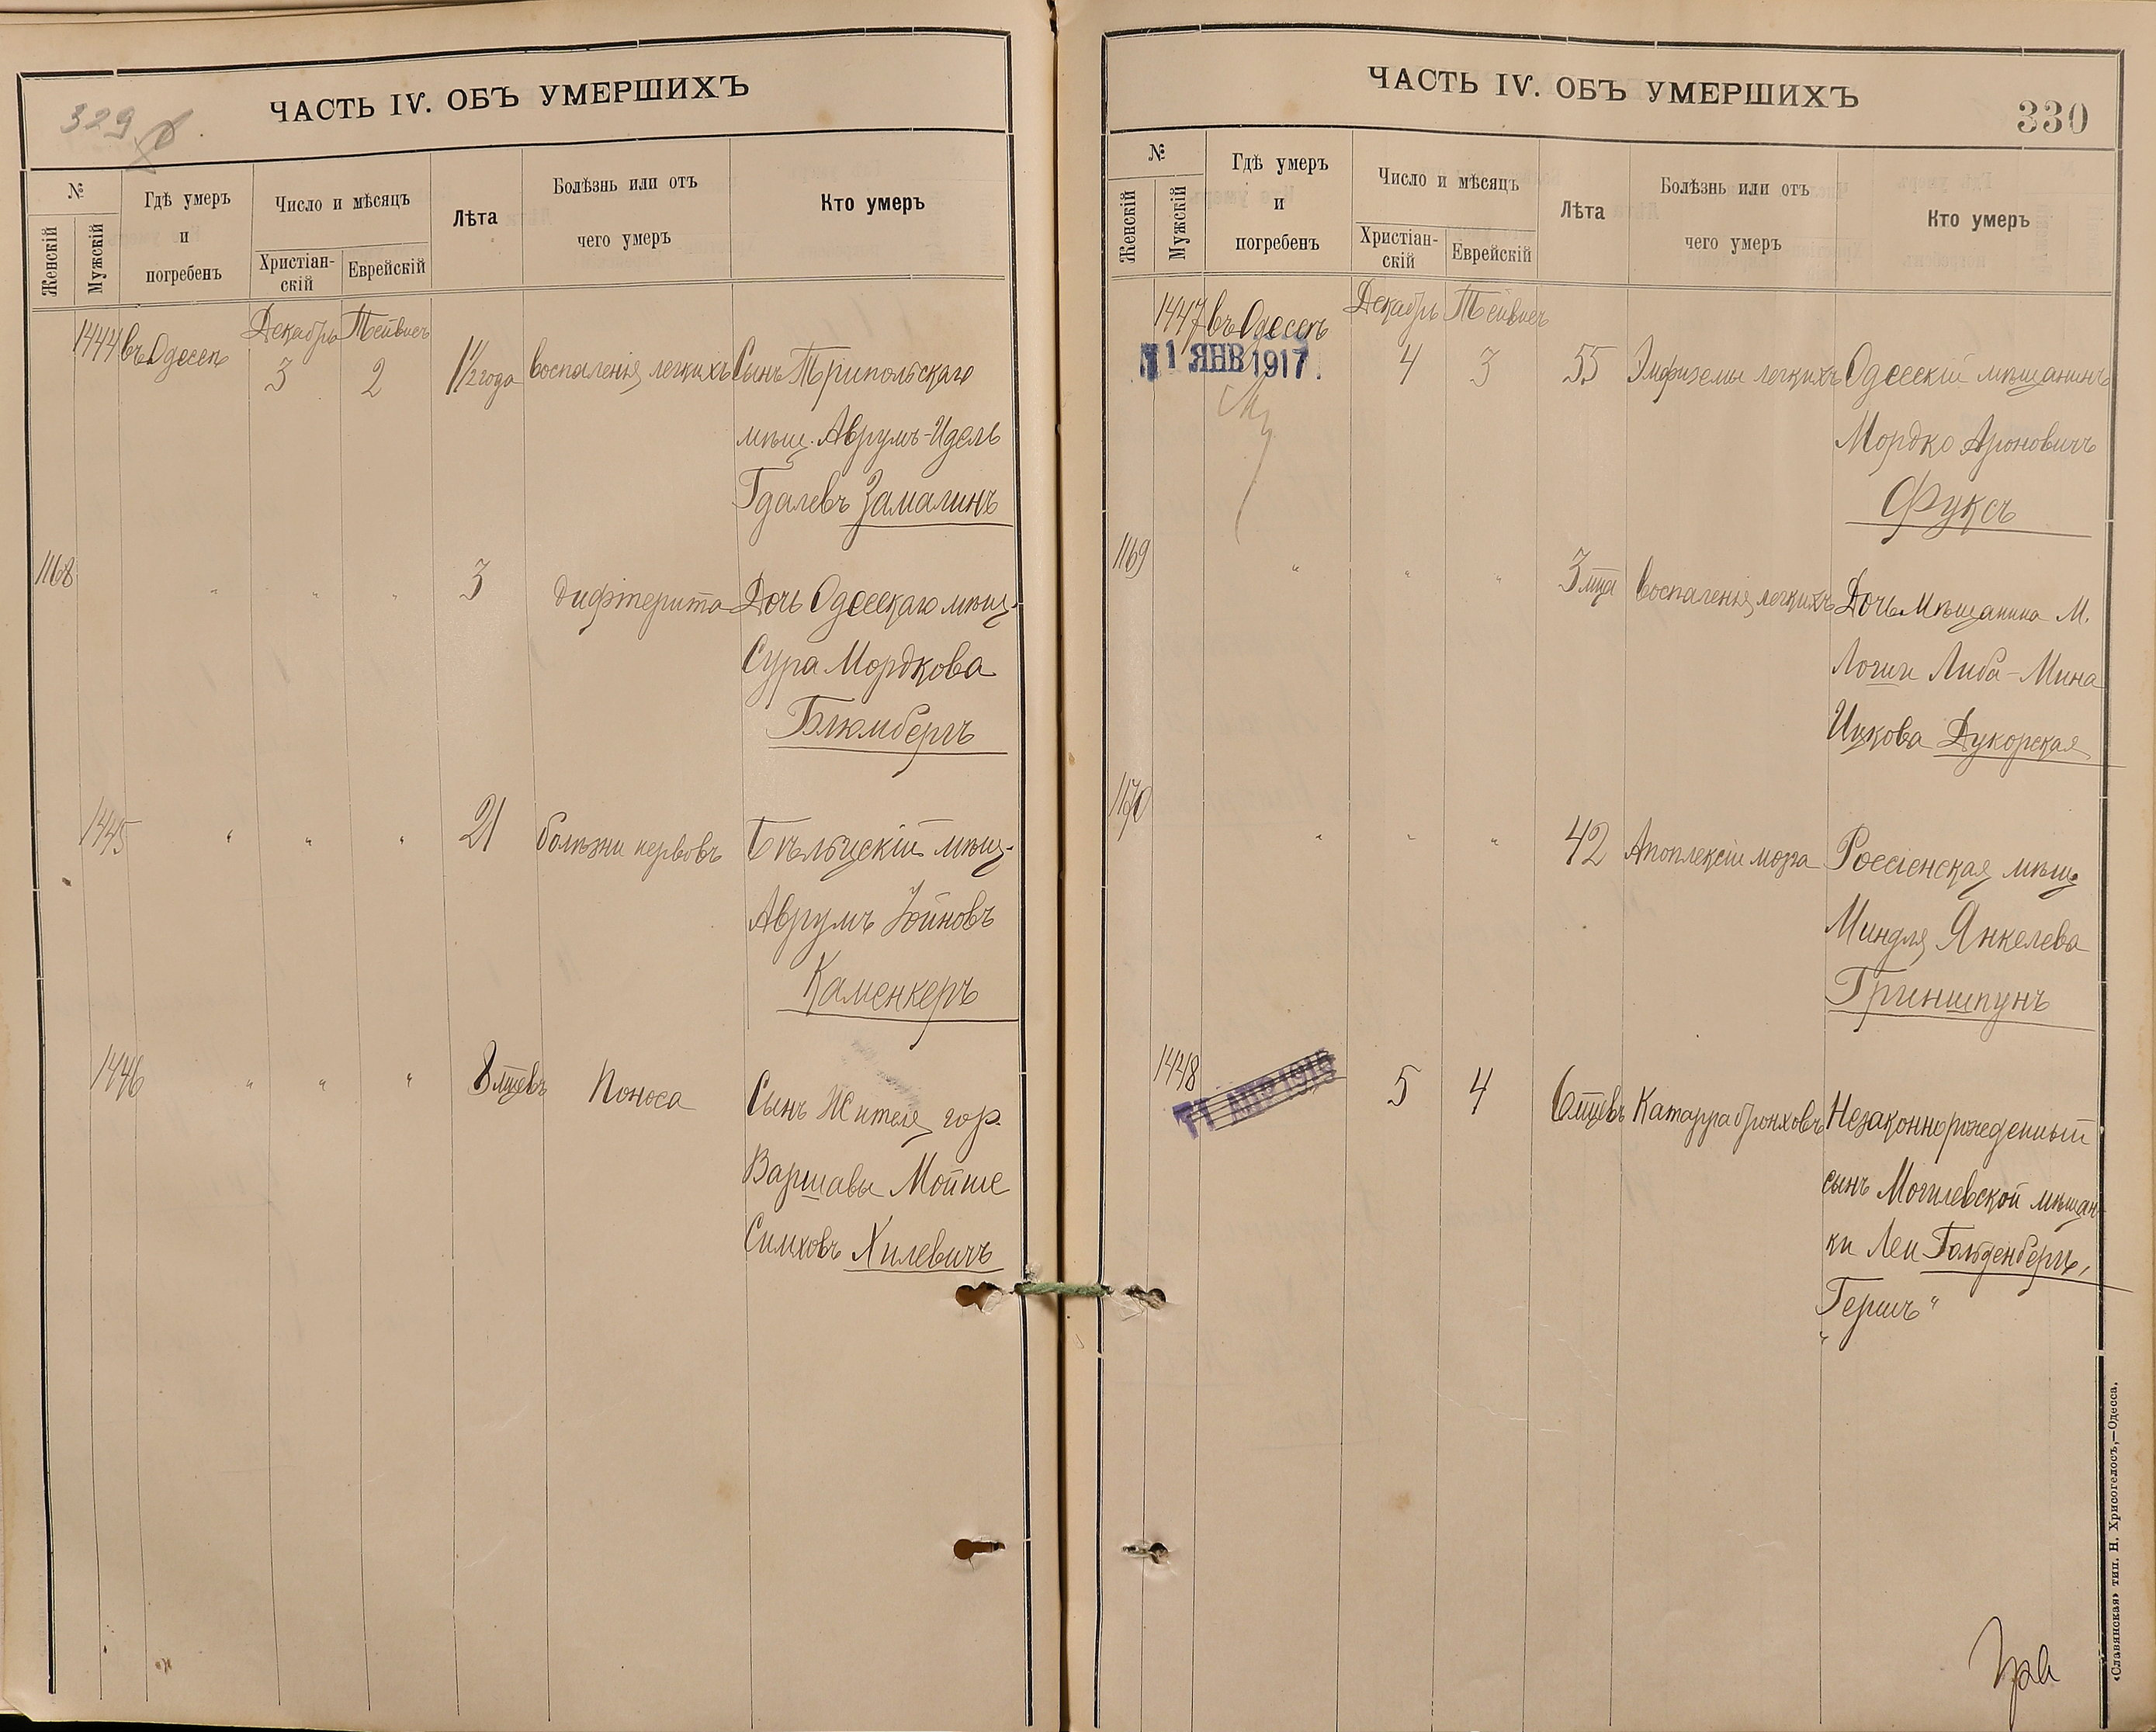 329
ЧАСТЬ IV. ОБЪ УМЕРШИХЪ
№
Женскій
Мужскій
Гдѣ умеръ
и
погребенъ
Число и мѣсяцъ
Христіан-
скій
Еврейскій
Лѣта
Болѣзнь или отъ
чего умеръ
Кто умеръ
Декабрь Тейвесъ
1444 въ Одессѣ 3 2 1½ года воспаленія легкихъ Сынъ Трипольскаго
мѣщ. Аврумъ-Идель
Гдалевъ Замалинъ
1168 " " " 3 дифтерита Дочь Одесскаго мѣщ.
Сура Мордкова
Блюмбергъ
1445 " " " 21 болѣзни нервовъ Бѣльцскій мѣщ.
Аврумъ Іойновъ
Каменкеръ
1446 " " " 8 мцевъ поноса Сынъ Жителя гор.
Варшавы Мойше
Симховъ Хилевичъ
ЧАСТЬ IV. ОБЪ УМЕРШИХЪ
330
№
Женскій
Мужскій
Гдѣ умеръ
и
погребенъ
Число и мѣсяцъ
Христіан-
скій
Еврейскій
Лѣта
Болѣзнь или отъ
чего умеръ
Кто умеръ
Декабрь Тейвесъ
1447 въ Одессѣ 4 3 55 Эмфиземы легкихъ Одесскій мѣщанинъ
1 ЯНВ 1917
Мордко Ароновичъ
Фуксъ
1169 " " " 3 мца воспаленія легкихъ Дочь мѣщанина М.
Логиш Либа-Мина
Ицкова Дукорская
1170 " " " 42 Апоплексіи мозга Россіенская мѣщ.
Миндля Янкелева
Гриншпунъ
1448 5 4 6 мцевъ Катарра бронховъ Незаконнорожденный
11 АПР 1916
сынъ Могилевской мѣщан-
ки Леи Гольденбергъ,
"Гершъ"
«Славянская» тип. Н. Хрисогелосъ,—Одесса.